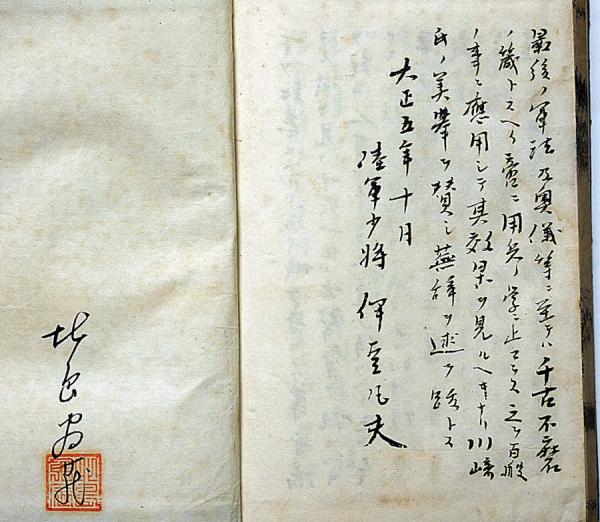 最後ノ軍法及奧儀等ニ至テハ千古不磨
ノ箴トスヘク啻ニ用兵ノ学ニ止マラス之ヲ百般
ノ事ニ應用シテ其效果ヲ見ルヘキナリ川崎
氏ノ美擧ヲ賛シ蕪辞ヲ述ヘ跋トス
大正五年十月
陸軍少将
夫